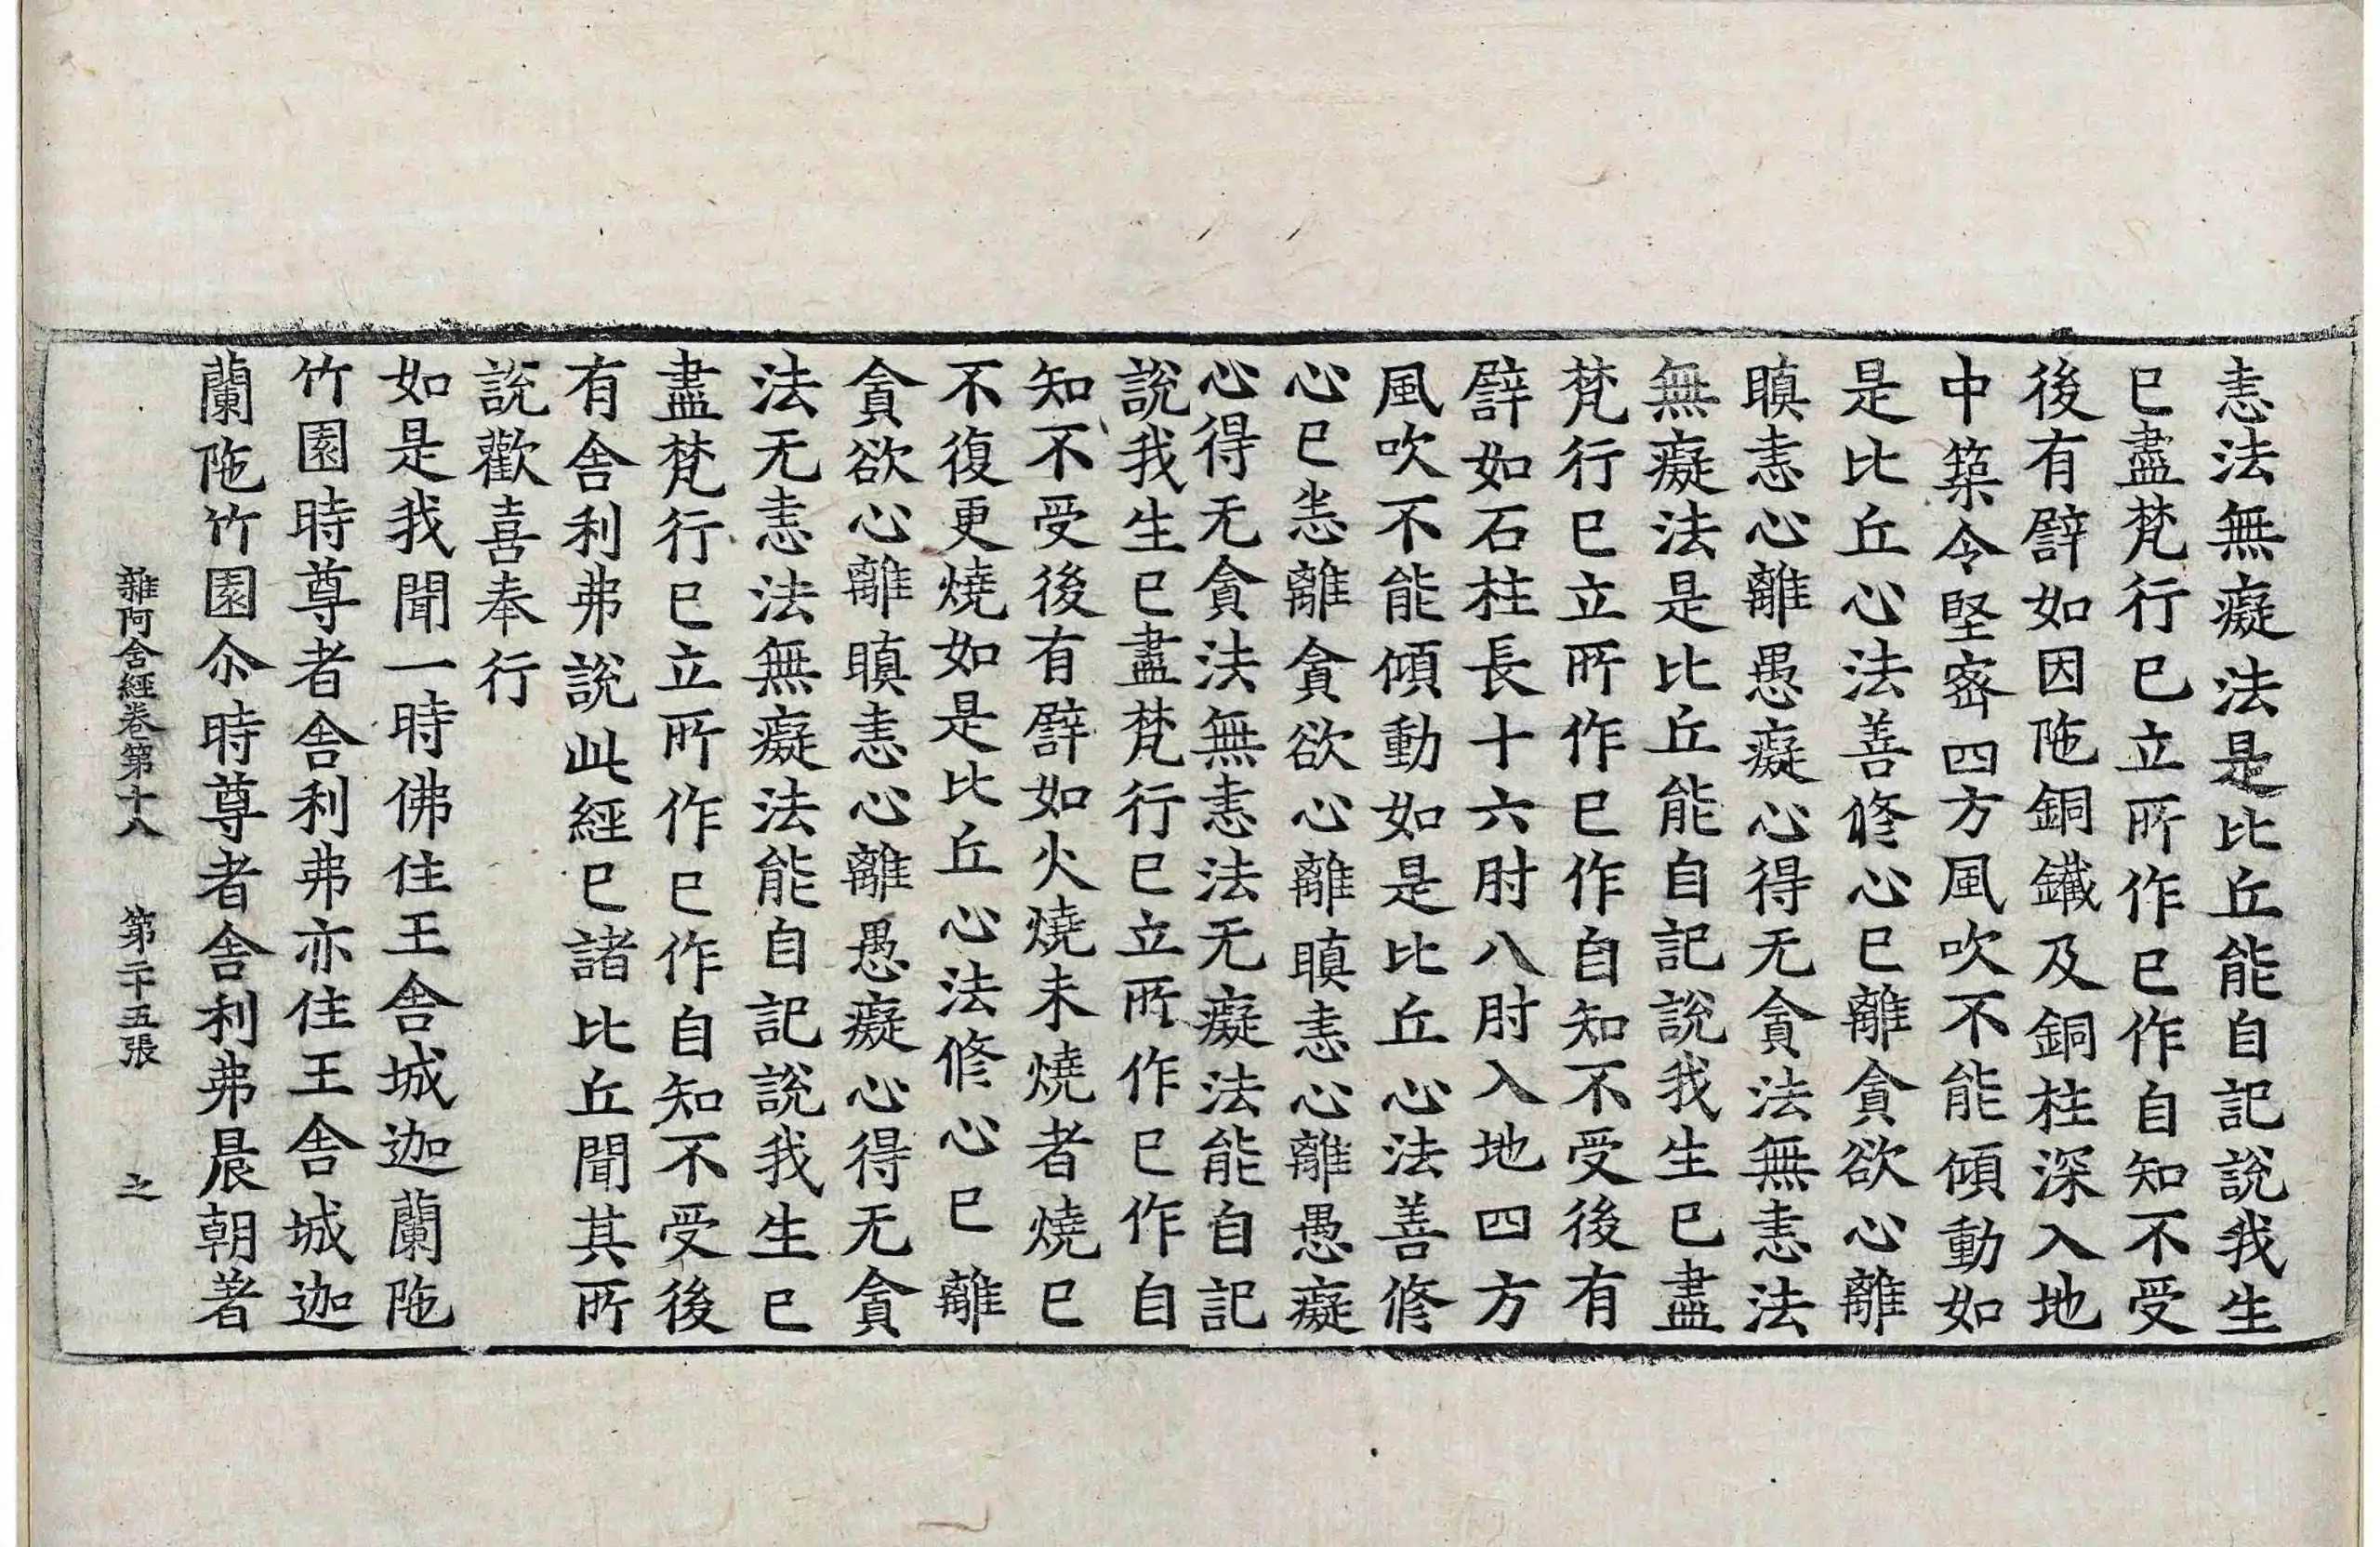 恚法無癡法是比丘能自記說我生
已盡梵行已立所作已作自知不受
後有譬如因陁銅鐵及銅柱深入地
中築令堅密四方風吹不能傾動如
是比丘心法善修心已離貪欲心離
瞋恚心離愚癡心得无貪法無恚法
無癡法是比丘能自記說我生已盡
梵行已立所作已作自知不受後有
譬如石柱長十六肘八肘入地四方
風吹不能傾動如是比丘心法善修
心已恚離貪欲心離瞋恚心離愚癡
心得无貪法無恚法无癡法能自記
說我生已盡梵行已立所作已作自
知不受後有譬如火燒未燒者燒已
不復更燒如是比丘心法修心已離
貪欲心離瞋恚心離愚癡心得无貪
法无恚法無癡法能自記說我生已
盡梵行已立所作已作自知不受後
有舍利弗說此經已諸比丘聞其所
說歡喜奉行
如是我聞一時佛住王舍城迦蘭陁
竹園時尊者舍利弗亦住王舍城迦
蘭陁竹園尒時尊者舍利弗晨朝著
雜阿含經卷第十八 第二十五張 之